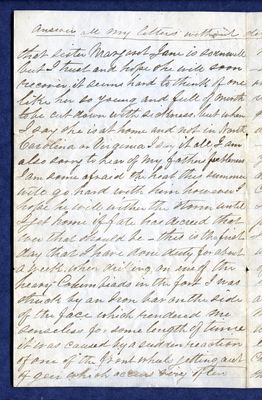 Answer all my letters without
that sister Margaret Jane is so unwell
but I trust and hope she will soon
recover, it seems hard to think of one
like her so young and full of mirth
to be cut down with sickness, but when
I say she is at home and not in North
Carolina or Virginia I say it all I am
also sorry to hear of my fathers feebleness
I am some afraid the heat this summer
will go hard with him however I
hope he will wither the storm until
I get home if fate has decreed that
ever that should be — this is the first
day that I have done duty for about
a week, when drilling on one of the
heavy Columbiads in the fort I was
struck by an Iron bar on the side
of the face which rendered me
senseless for some length of time
it was caused by a sudden reaction
of one of the front wheels getting out
of gear which occurs very often